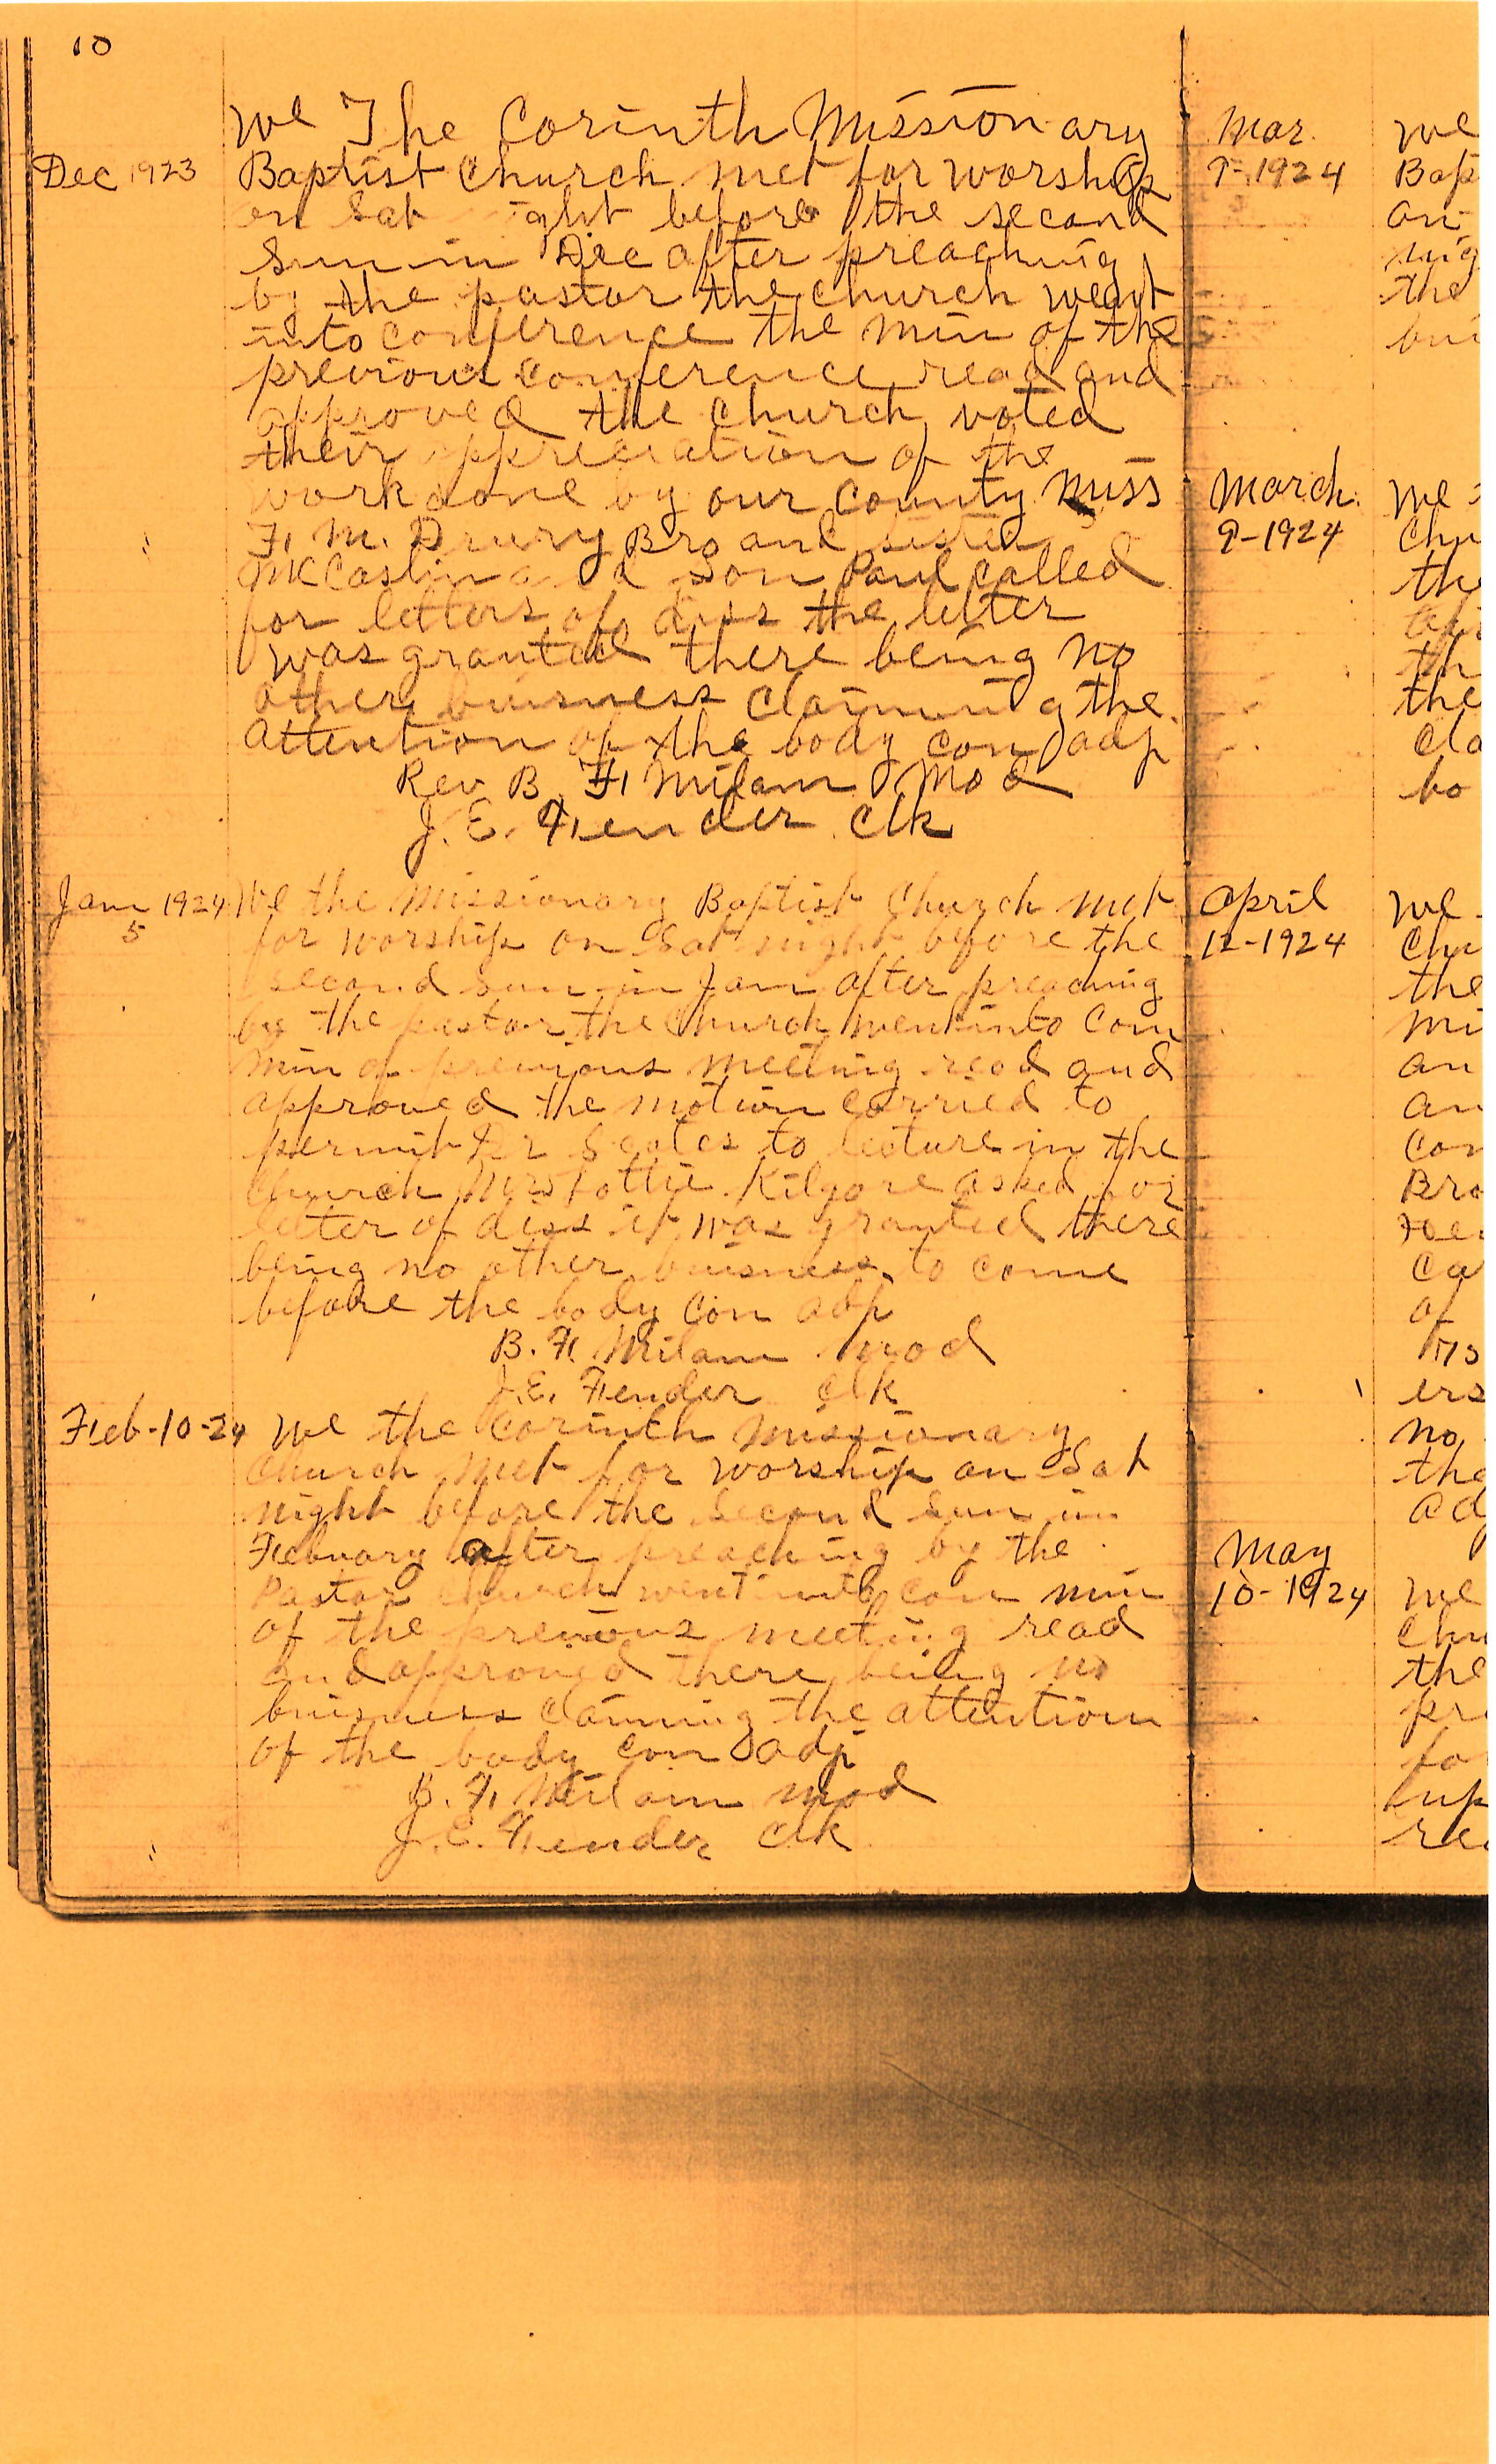 10
We The Corinth Missionary
Dec 1923 Baptist Church met for worship
on Sat ight before the second
Sun in Dec after preaching
by the pastor the church went
into conference the min of the
previous conference read and
approved the church voted
their appreciation of the
work done by our county Miss
F. M. Drury Bro and sister
McCaslin a d son Paul called
for letters of diss the letter
was granted there being no
other buisness claiming the
attention of the body con adj
Rev B. F. Milam Mod
J. E. Fender Clk
Jan 1924 We the Missionary Baptist Church met
5 for worship on Sat night before the
second sun in Jan after preaching
by the pastor the Church went into Con
min of previous meeting read and
approved the motion carried to
permit Dr Scates to lecture in the
Church Mrs Tottie Kilgore asked for
letter of diss it was granted there
being no other buisness to come
before the body Con adj
B. F. Milam Mod
J. E. Fender Clk
Feb-10-24 We the Corinth Missionary
Church met for worship on Sat
night before the second Sun in
Febuary after preaching by the
Pastor Church went into con min
of the previous meeting read
and approved there being no
buisness claiming the attention
of the body con adj
B. F. Milam Mod
J. E. Fender Clk
Mar. We
9-1924 Bap
on
nig
the
bui
March We
9-1924 Chu
the
th
the
cla
bo
April We
12-1924 Chu
the
mi
an
an
Con
Bro
Fen
Ca
of
ers
no
the
ad
May
10-1924 We
Chu
the
pr
fo
up
rec